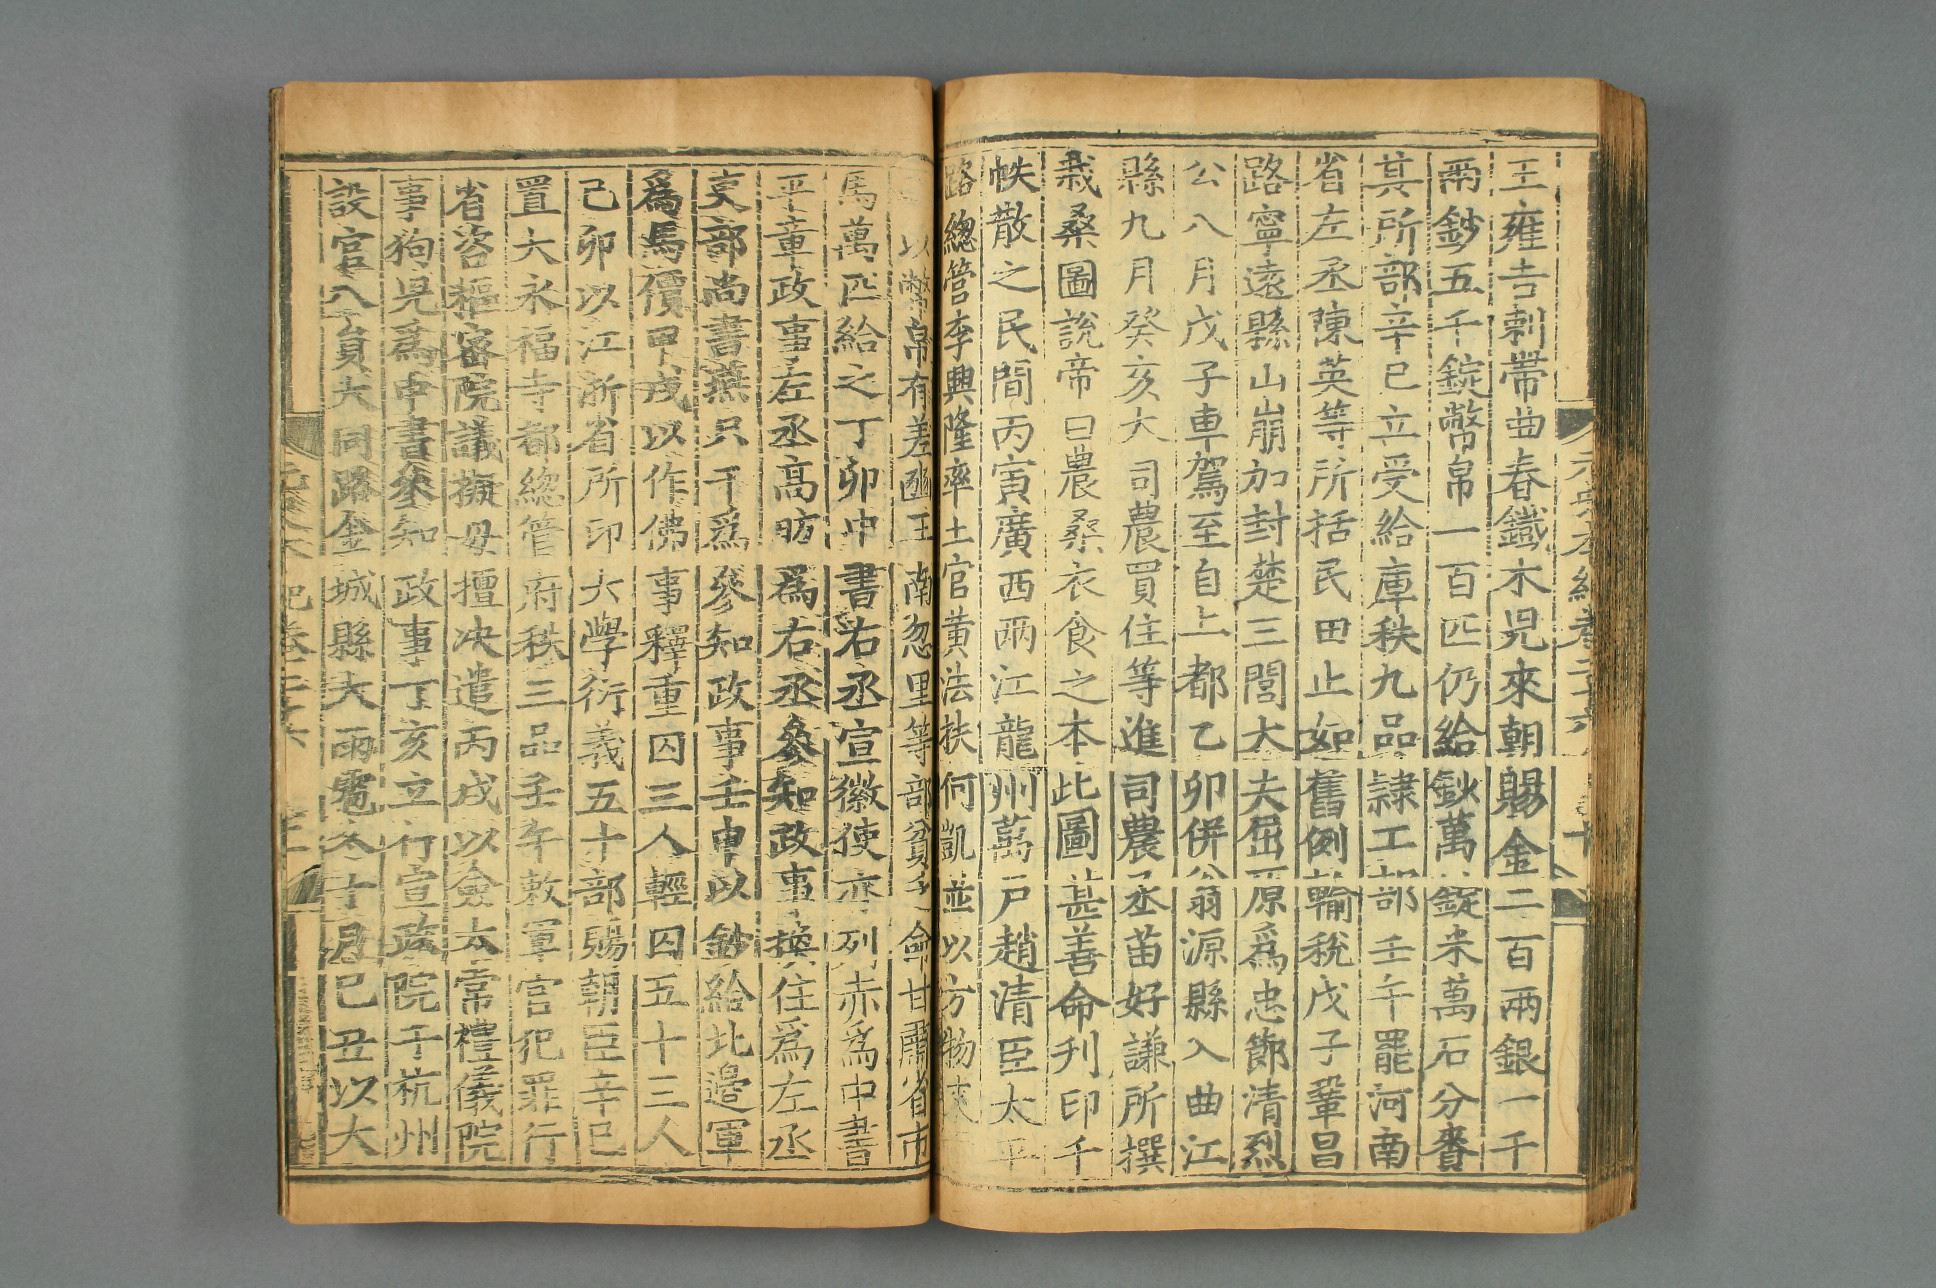 元史本紀卷二十六
王雍吉剌帶曲春鐵木兒來朝賜金二百兩銀一千
兩鈔五千錠幣帛一百匹仍給鈔萬錠米萬石分賚
其所部辛巳立受給庫秩九品隷工部壬午罷河南
省左丞陳英等所括民田止如舊例輸稅戊子鞏昌
路寧遠縣山崩加封楚三閭大夫屈原爲忠節清烈
公八月戊子車駕至自上都乙卯併翁源縣入曲江
縣九月癸亥大司農買住等進司農丞苗好謙所撰
栽桑圖說帝曰農桑衣食之本此圖甚善命刋印千
帙散之民間丙寅廣西兩江龍州萬戶趙清臣太平
路總管李興隆率土官黃法扶何凱並以方物來
以幣帛有差豳王南忽里等部貧乏命甘肅省市
馬萬匹給之丁卯中書右丞宣徽使亦列赤爲中書
平章政事左丞高昉爲右丞參知政事換住爲左丞
吏部尚書燕只干爲參知政事壬申以鈔給北邊軍
爲馬價甲戌以作佛事釋重囚三人輕囚五十三人
己卯以江浙省所印大學衍義五十部賜朝臣辛巳
置大永福寺都總管府秩三品壬午敕軍官犯罪行
省咨樞密院議擬毋擅决遣丙戌以僉太常禮儀院
事狗兒爲中書參知政事丁亥立行宣政院于杭州
設官八員大同路金城縣大雨雹冬十月己丑以大
元史本紀卷二十六